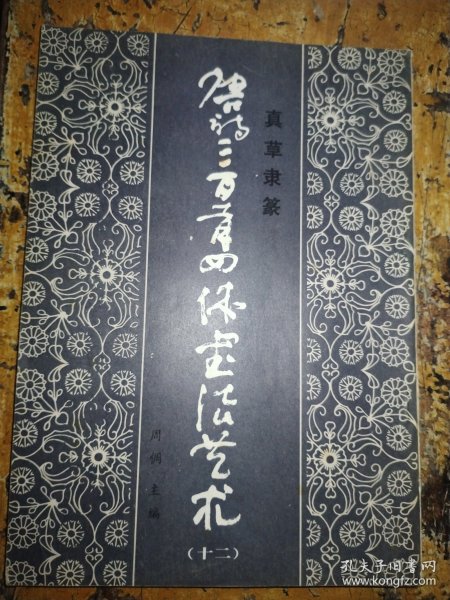 真草隶篆
唐诗三百首四体书法艺术
(十二)
周倜主编
孔夫子旧书网
www.kongfz.com